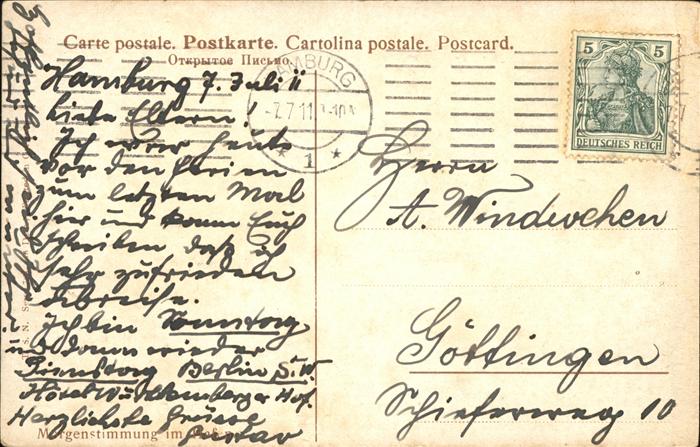 Carte postale. Postkarte. Cartolina postale. Postcard.
Открытое Письмо.
HAMBURG
-7.7.11.
* 1 *
5 5
DEUTSCHES REICH
Hamburg 7. Juli 11
Liebe Eltern!
Ich war heute
vor den Ferien
zum letzten Mal
hier und kann Euch
schreiben daß ich
sehr zufrieden
abreise.
Ich bin Sonntag
und dann wieder
Dienstag Berlin S.W.
Hôtel Württemberger Hof.
Herzlichste Grüsse
Gustav
Herrn
A. Windwehen
Göttingen
Schieferweg 10
Morgenstimmung im